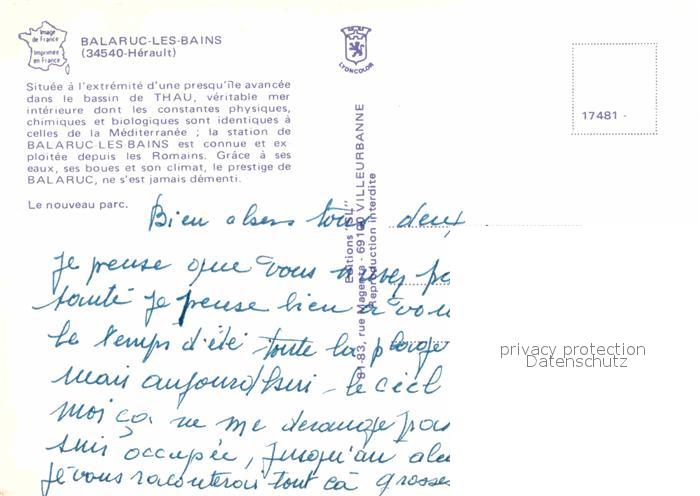 Image
de France
Imprimée
en France
BALARUC-LES-BAINS
(34540-Hérault)
LYONCOLOR
17481 -
Située à l'extrémité d'une presqu'île avancée
dans le bassin de THAU, véritable mer
intérieure dont les constantes physiques,
chimiques et biologiques sont identiques à
celles de la Méditerranée ; la station de
BALARUC-LES BAINS est connue et ex-
ploitée depuis les Romains. Grâce à ses
eaux, ses boues et son climat, le prestige de
BALARUC, ne s'est jamais démenti.
Le nouveau parc.
Editions "CIL"
81-83, rue Magenta - 69100 VILLEURBANNE
Reproduction interdite
Bien tous deux
Je pense que vous
santé je pense bien à vou
le temps d'été toute la plage
mais aujourd'hui le
moi ça ne me derange pas
suis occupée, jusqu'au
Je vous raconterai tout ça grosses
privacy protection
Datenschutz